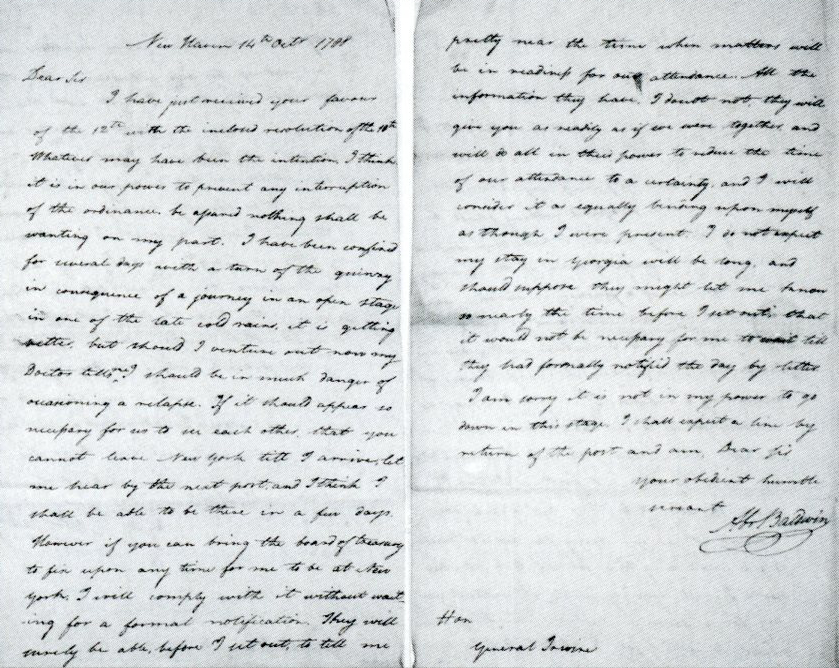 New Haven 14th Octr 1788
Dear Sir
I have just received your favour
of the 12th with the inclosed resolution of the 10th
Whatever may have been the intention, I think
it is in our power to prevent any interruption
of the ordinance. be assured nothing shall be
wanting on my part. I have been confined
for several days with a turn of the quinzy
in consequence of a journey in an open stage
in one of the late cold rains, it is getting
better, but should I venture out now my
Doctor tells me I should be in much danger of
occasioning a relapse. If it should appear so
necessary for us to see each other, that you
cannot leave New York till I arrive, let
me hear by the next post, and I think I
shall be able to be there in a few days.
However if you can bring the board of treasury
to fix upon any time for me to be at New
york, I will comply with it without wait-
ing for a formal notification. They will
surely be able, before I set out, to tell me
pretty near the time when matters will
be in readiness for our attendance. All the
information they have, I doubt not, they will
give you as readily as if we were together, and
will do all in their power to reduce the time
of our attendance to a certainty, and I will
consider it as equally binding upon myself
as though I were present. I do not expect
my stay in Georgia will be long, and
should suppose they might let me know
so nearly the time before I set out, that
it would not be necessary for me to wait till
they had formally notified the day by letter
I am sorry it is not in my power to go
down in this stage. I shall expect a line by
return of the post and am, Dear Sir
your obedient humble
servant
Abr Baldwin
Hon
General Irvine